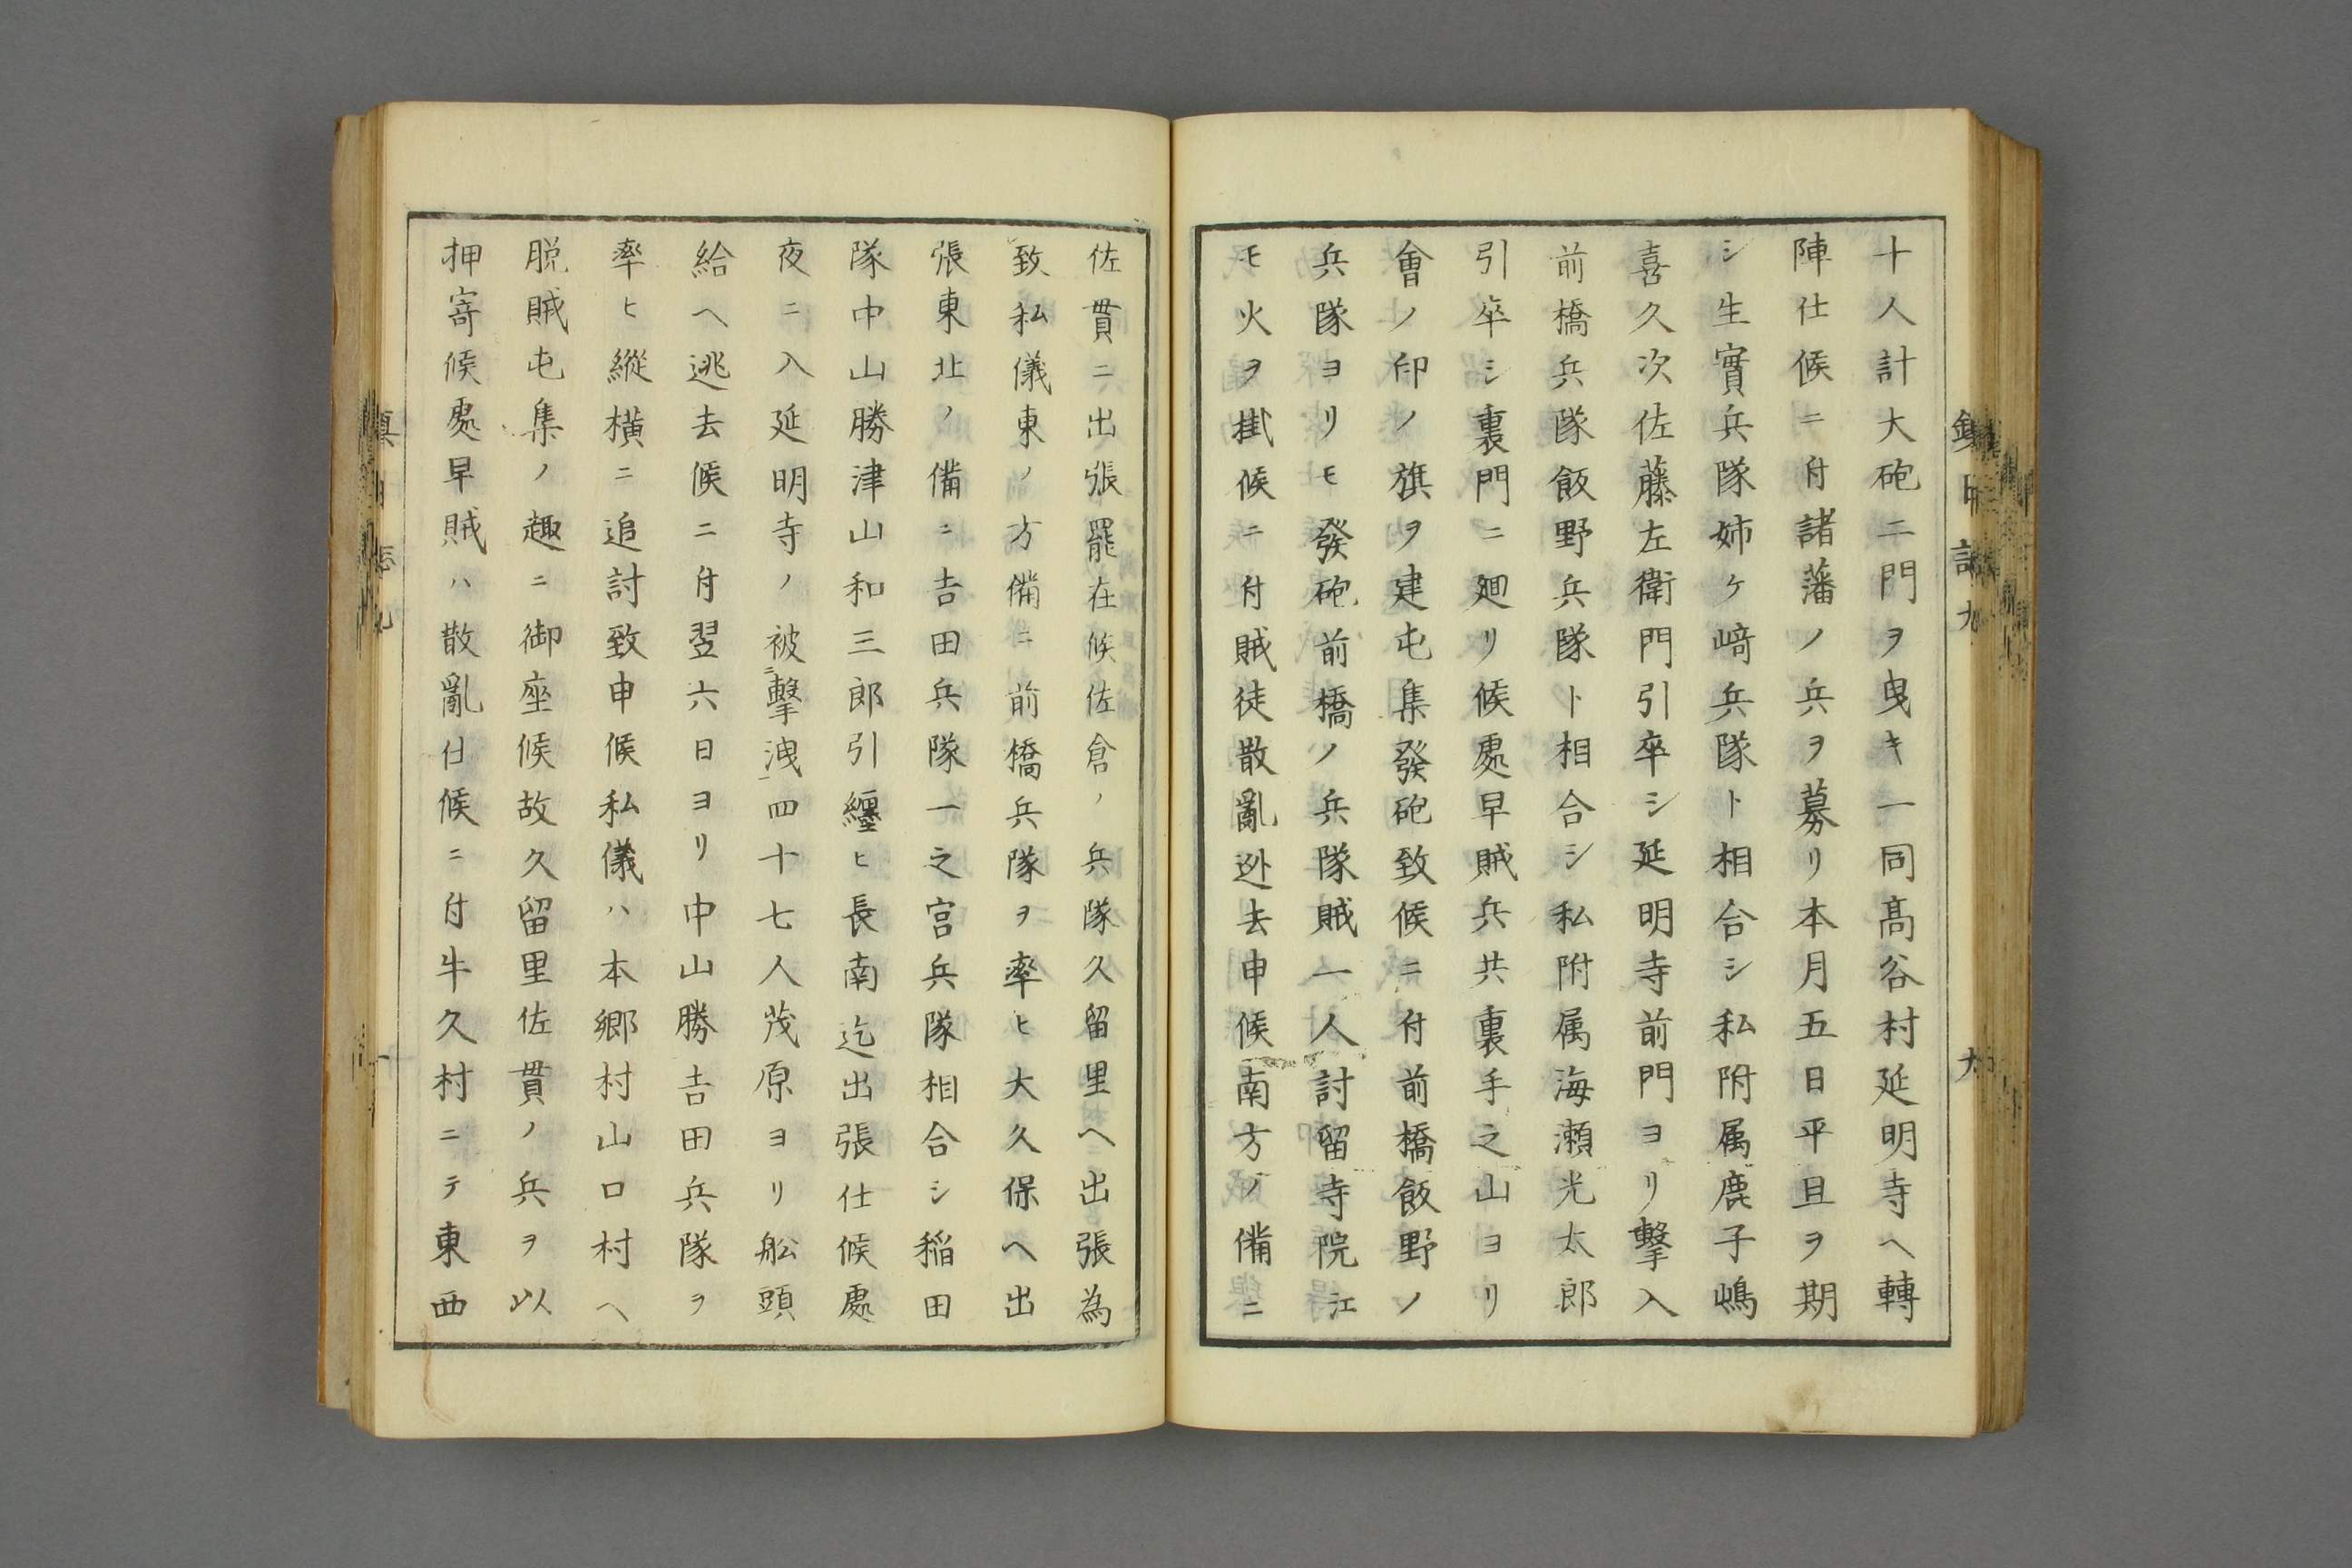 十人計大砲二門ヲ曳キ一同髙谷村延明寺ヘ轉
陣仕候ニ付諸藩ノ兵ヲ募リ本月五日平旦ヲ期
シ生實兵隊姉ケ﨑兵隊ト相合シ私附属鹿子嶋
喜久次佐藤左衛門引卒シ延明寺前門ヨリ擊入
前橋兵隊飯野兵隊ト相合シ私附属海瀬光太郎
引卒シ裏門ニ廻リ候處早賊兵共裏手之山ヨリ
會ノ印ノ旗ヲ建屯集發砲致候ニ付前橋飯野ノ
兵隊ヨリモ發砲前橋ノ兵隊賊一人討留寺院江
モ火ヲ掛候ニ付賊徒散亂迯去申候南方ノ備ニ
佐貫ニ出張罷在候佐倉ノ兵隊久留里ヘ出張為
致私儀東ノ方備ニ前橋兵隊ヲ率ヒ大久保ヘ出
張東北ノ備ニ吉田兵隊一之宮兵隊相合シ稲田
隊中山勝津山和三郎引纏ヒ長南迄出張仕候處
夜ニ入延明寺ノ被擊洩四十七人茂原ヨリ舩頭
給ヘ逃去候ニ付翌六日ヨリ中山勝吉田兵隊ヲ
率ヒ縱横ニ追討致申候私儀ハ本郷村山口村ヘ
脱賊屯集ノ趣ニ御座候故久留里佐貫ノ兵ヲ以
押寄候處早賊ハ散亂仕候ニ付牛久村ニテ東西